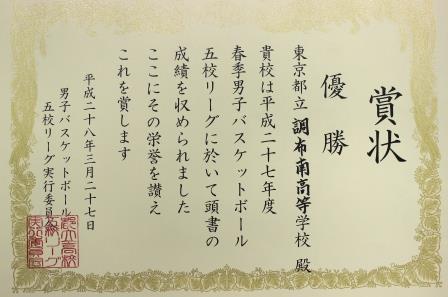 賞状
優勝
東京都立 調布南高等学校 殿
貴校は平成二十七年度
春季男子バスケットボール
五校リーグに於いて頭書の
成績を収められました
ここにその栄誉を讃え
これを賞します
平成二十八年三月二十七日
男子バスケットボール
五校リーグ実行委員会